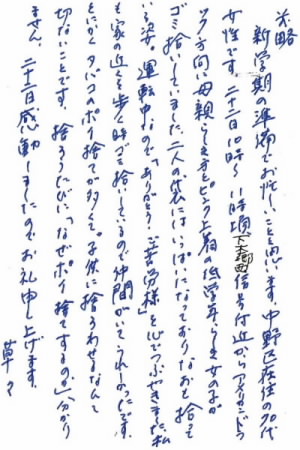 前略
新学期の準備でお忙しいことと思います。中野区在住の70代
女性です。二十二日10時〜11時頃下大郷町信号付近からアイリンドウ
ツク方向に母親らしき方とピンク上着の低学年らしき女の子が
ゴミ拾いしていました。二人の袋にはいっぱいになっておりなおも拾って
いる姿。運転中なので「ありがとう」「ご苦労様」を心でつぶやきました。私
も家の近くを歩く時ゴミ拾いしているので仲間がいてうれしかったです。
とにかくタバコのポイ捨てが多くて。子供に拾わせるなんて
切ないことです。拾うたびに「なぜポイ捨てするのか」分かり
ません。二十二日感動しましたのでお礼申し上げます。
草々